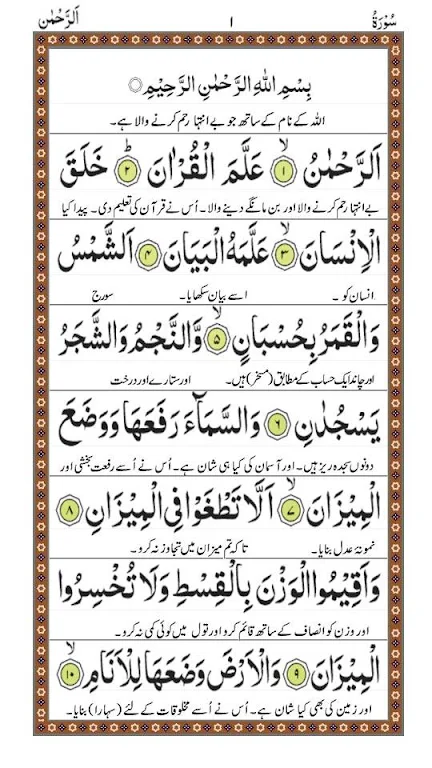 سُوْرَةُ ١ اَلرَّحْمٰن
بِسْمِ اللّٰهِ الرَّحْمٰنِ الرَّحِيْمِ
اللہ کے نام کے ساتھ جو بے انتہا رحم کرنے والا ہے۔
اَلرَّحْمٰنُ ۙ﴿١﴾ عَلَّمَ الْقُرْاٰنَ ؕ﴿٢﴾ خَلَقَ
بے انتہا رحم کرنے والا اور بن مانگے دینے والا۔ اُس نے قرآن کی تعلیم دی۔ پیدا کیا
الْاِنْسَانَ ۙ﴿٣﴾ عَلَّمَهُ الْبَيَانَ ﴿٤﴾ اَلشَّمْسُ
انسان کو ۔ اسے بیان سکھایا۔ سورج
وَالْقَمَرُ بِحُسْبَانٍ ۙ﴿٥﴾ وَّالنَّجْمُ وَالشَّجَرُ
اور چاند ایک حساب کے مطابق (مسخر) ہیں۔ اور ستارے اور درخت
يَسْجُدٰنِ ﴿٦﴾ وَالسَّمَآءَ رَفَعَهَا وَوَضَعَ
دونوں سجدہ ریز ہیں۔ اور آسمان کی کیا ہی شان ہے۔ اُس نے اُسے رفعت بخشی اور
الْمِيْزَانَ ۙ﴿٧﴾ اَلَّا تَطْغَوْا فِي الْمِيْزَانِ ﴿٨﴾
نمونۂ عدل بنایا۔ تا کہ تم میزان میں تجاوز نہ کرو۔
وَاَقِيْمُوا الْوَزْنَ بِالْقِسْطِ وَلَا تُخْسِرُوا
اور وزن کو انصاف کے ساتھ قائم کرو اور تول میں کوئی کمی نہ کرو۔
الْمِيْزَانَ ﴿٩﴾ وَالْاَرْضَ وَضَعَهَا لِلْاَنَامِ ۙ﴿١٠﴾
اور زمین کی بھی کیا شان ہے۔ اُس نے اُسے مخلوقات کے لئے (سہارا) بنایا۔